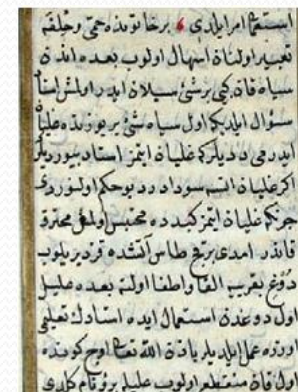 استعمال امر ایلدی بر خاتونده حمی و خلفه
تعبیر اولنان اسهال اولوب بعده اندن
سیاه قان کبی بر شئ سیلان ایدر اولمش استاد
سؤال ایلدیکم اول سیاه شئ یر یوزنده غلیان
ایدرمی دیدیلرکه غلیان ایتمز استاد بیوردیلر
اکر غلیان ایتسه سودا در دیو حکم اولنوردی
چونکه غلیان ایتمز کبدده محتبس اولمغله محترق
قاندر امدی برقچ طاش آتشده قزدیریلوب
دوغ بقریه القا و اطفا اولنه بعده علیل
اول دوغدن استعمال ایده استادک تعلیمی
اوزره عمل ایلدیلر باذن الله تعالی اوچ کونده
اول قان منقطع اولوب علیله یرو قام کلدی